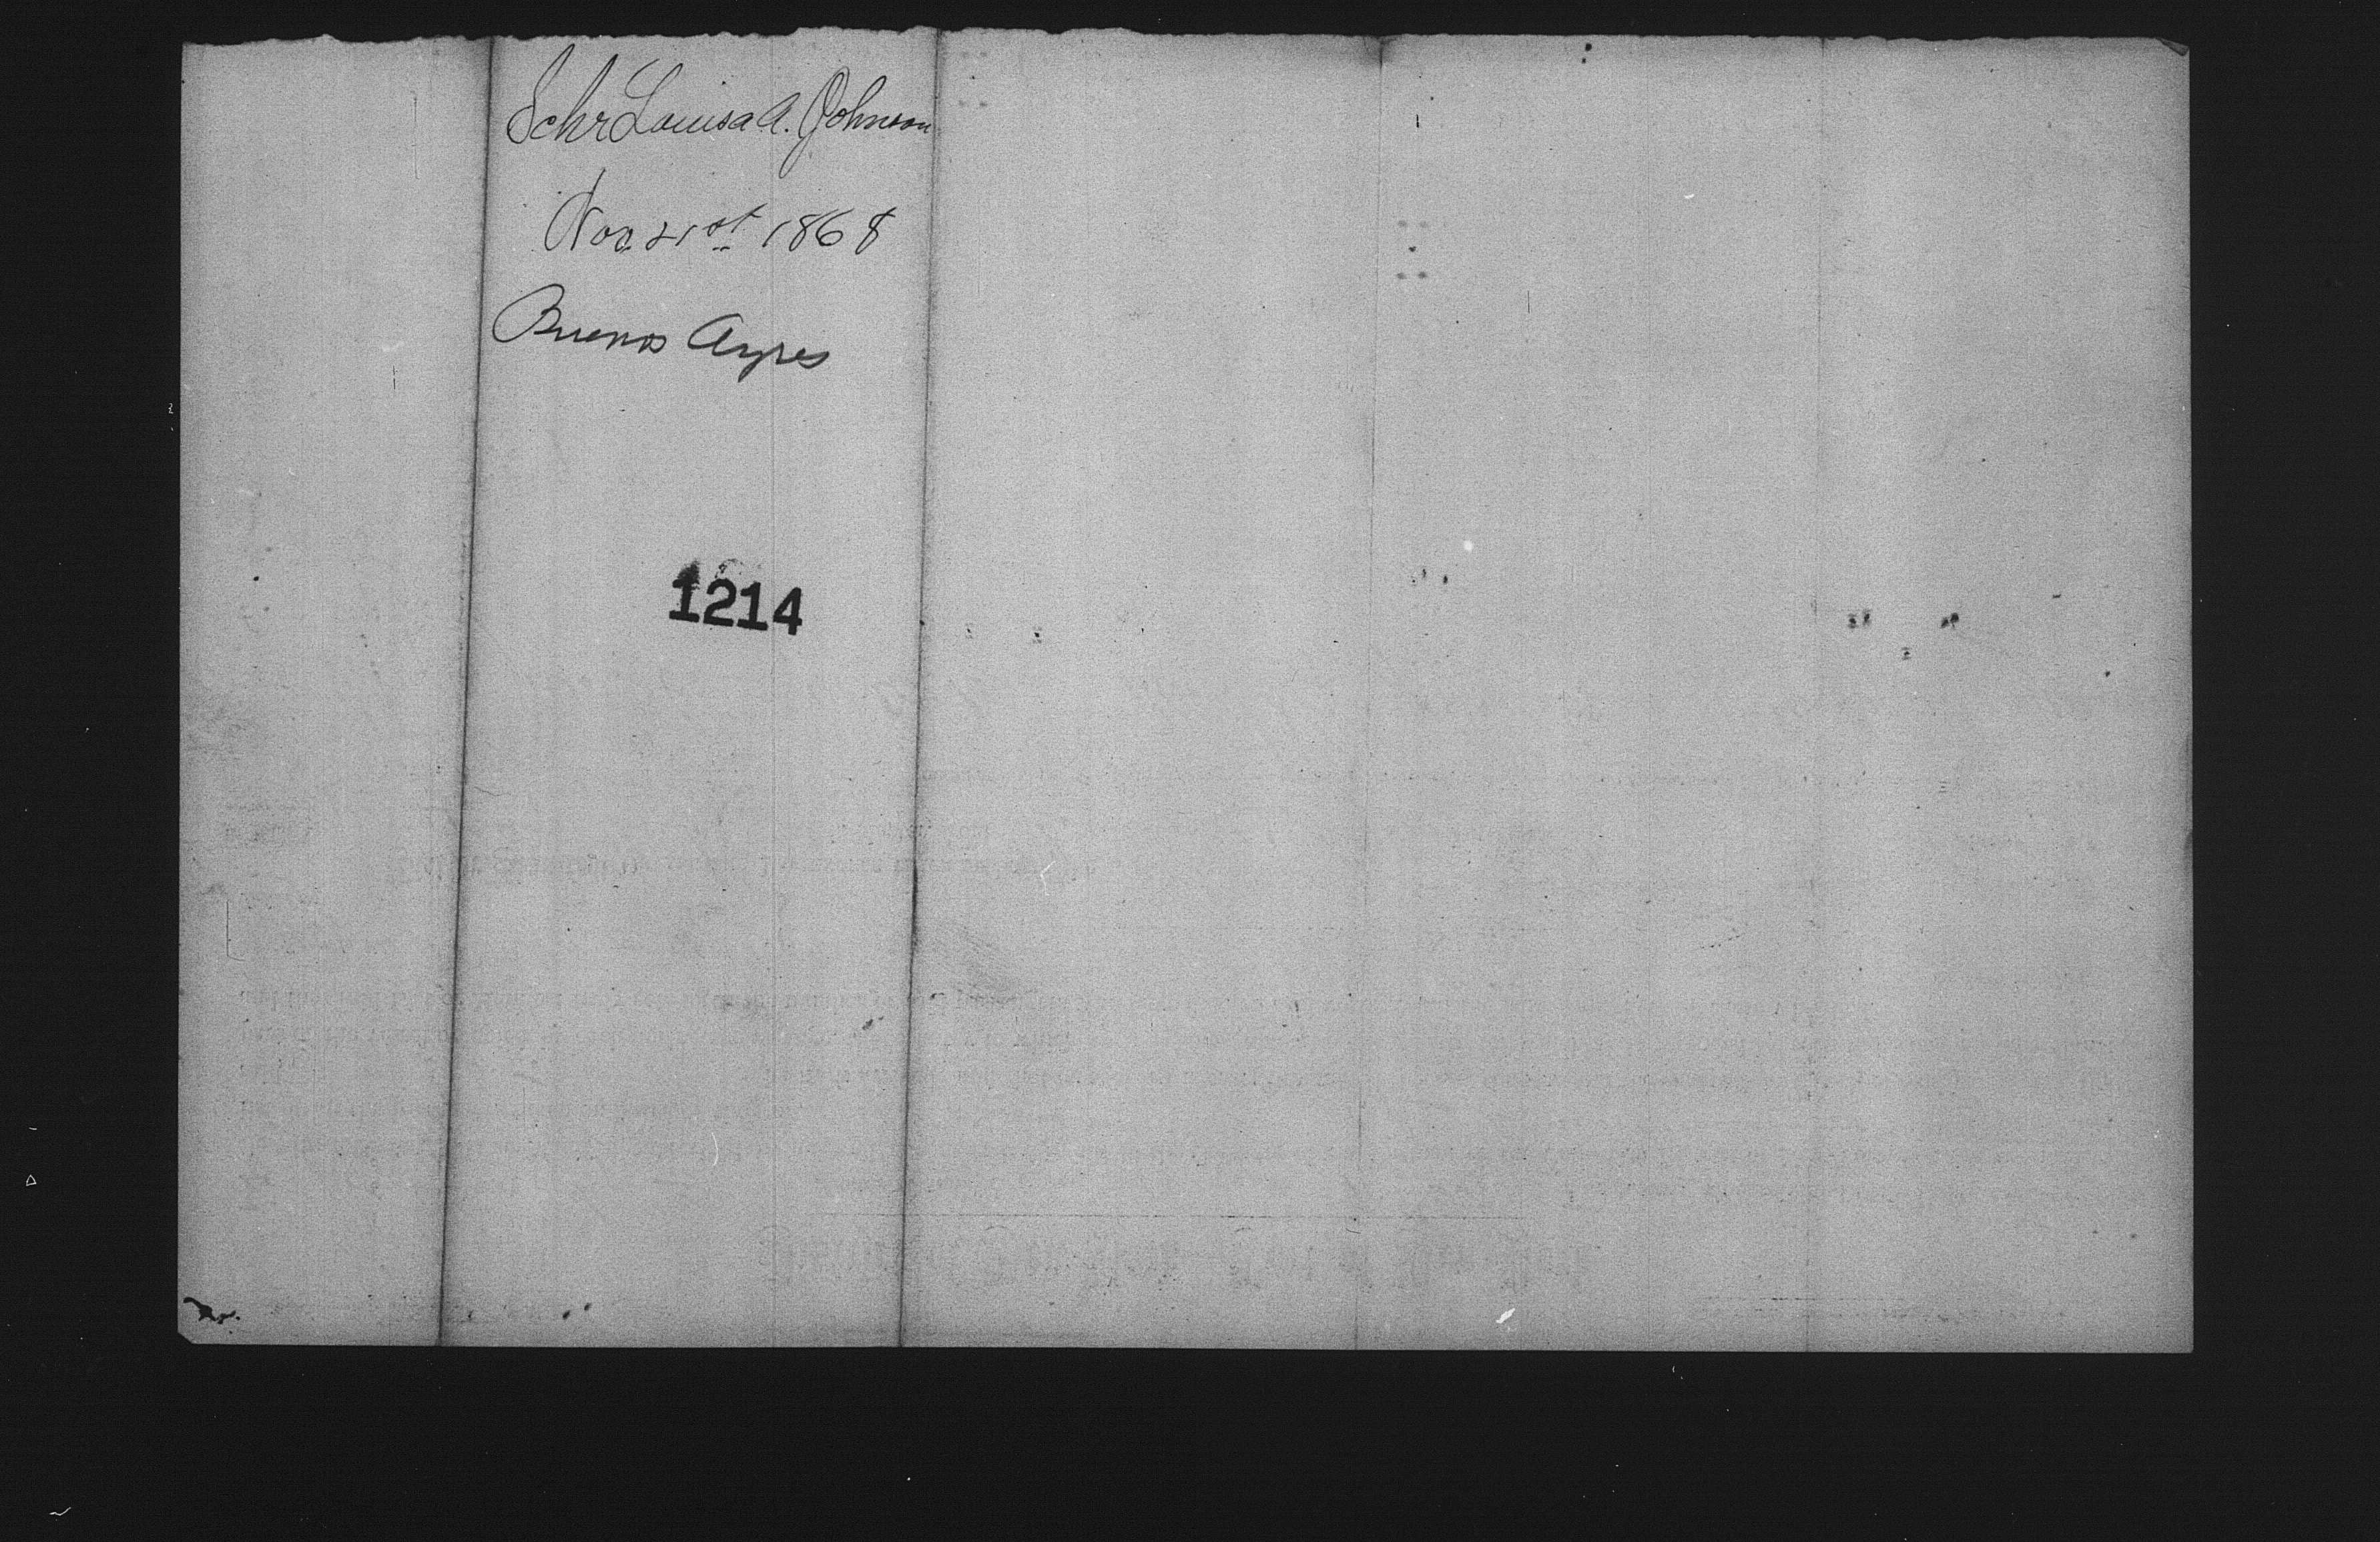 Schr Louisa A. Johnson
Nov 21st 1868
Buenos Ayres
1214